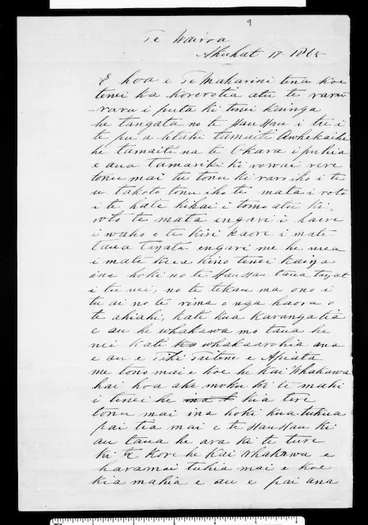 9
Te Wairoa
Akuhat 17 1865
E hoa e Te Makarini tena koe
tenei ka korerotia atu te raru
raru i puta ki tenei kainga
he tangata no te Hau Hau i
te pu a tetahi tamaiti
he tamaiti na te i puhia
e aua tamariki ki roroai rere
tonu mai tu tonu ki raro iho i te
u takoto tonu iho te mata i roto
i te kate kihai i tomo atu ki
roto te mata engari i haere
i waho o te kiri kaore i mate
taua Tangata engari me he mea
i mate kua kino tenei kainga
ina hoki no te Hau Hau taua tangat
i tu nei, no te tekau ma ono i
tu ai no te rima o nga haora o
te ahiahi, kati kua karangatia
e au he whakawa mo taua he
nei kati whakaarohia ana
e au e
me tono mai e koe he Kai Whakawa
hei hoa ake moku ki te mahi
i tenei he kia tere
tonu mai ina hoki kua tukua
pai tia mai e te Hau Hau ki
au taua he ara ki te ture
ki te kore he Kai Whakawa e
haramai tuhia mai e koe
kia mahia e au e pai ana